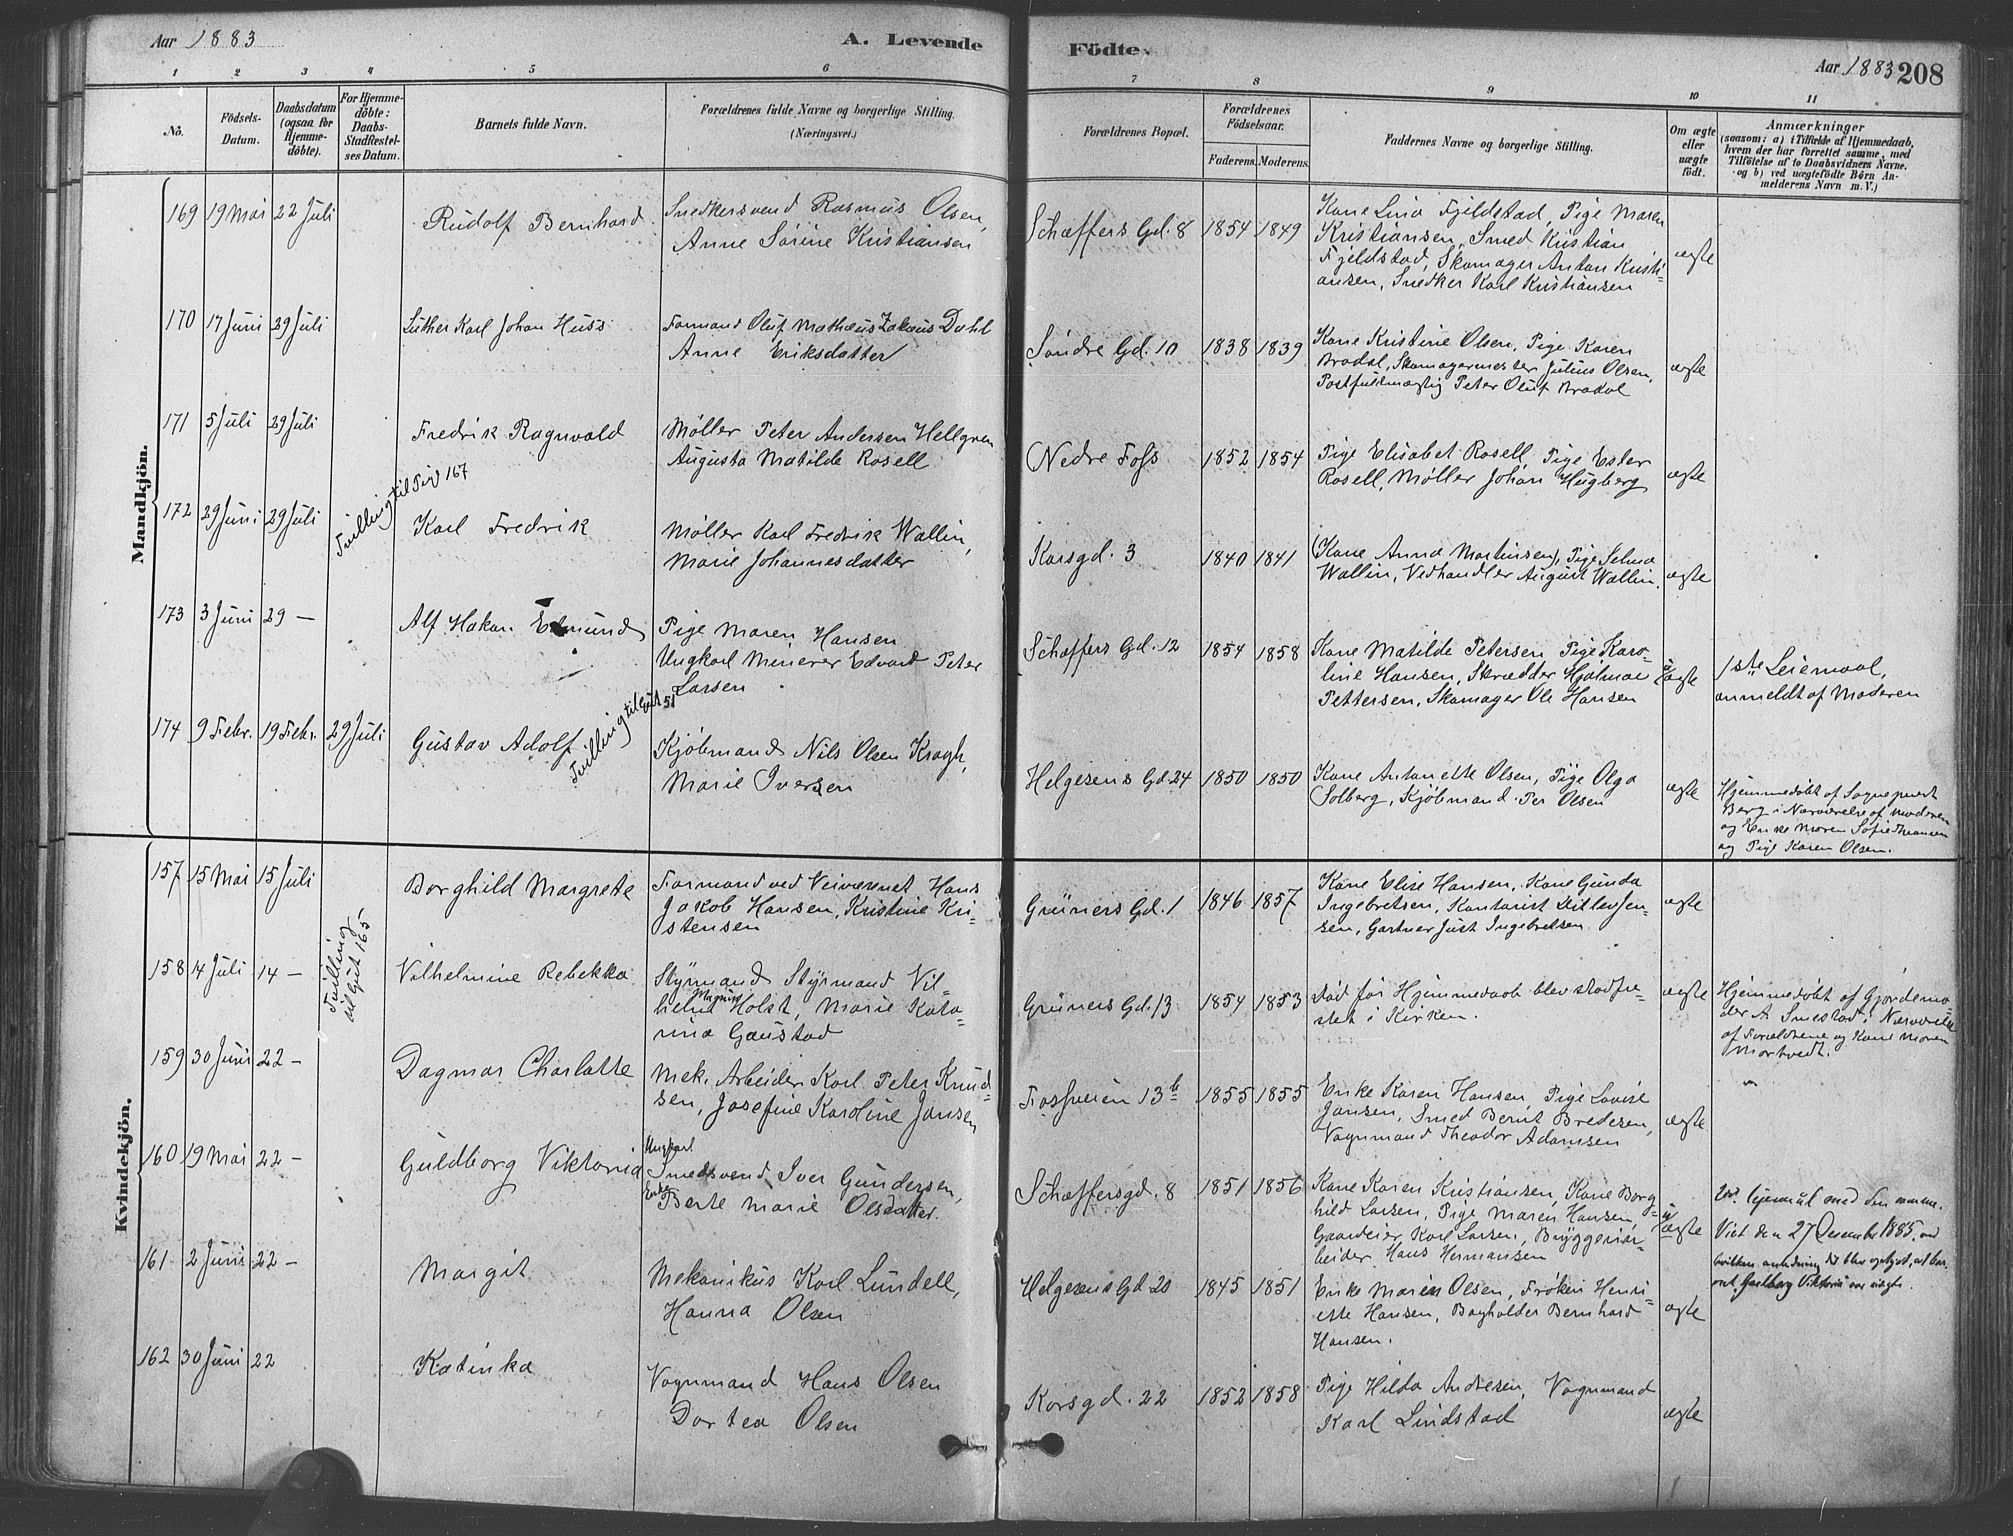 Aar 1883
A. Levende
Födte.
Aar 1883 208
1 2 3 4 5 6 7 8 9 10 11
No.
Födsels-
Datum.
Daabsdatum
(ogsaa for
Hjemme-
döbte).
For Hjemme-
döbte:
Daabs-
Stadfæstel-
ses Datum.
Barnets fulde Navn.
Forældrenes fulde Navne og borgerlige Stilling.
(Næringsvei.)
Forældrenes Bopæl.
Forældrenes
Födselsaar.
Faderens. Moderens.
Faddernes Navne og borgerlige Stilling.
Om ægte
eller
uægte
födt.
Anmærkninger
(saasom: a) i Tilfælde af Hjemmedaab,
hvem der har forrettet samme, med
Tilföielse af to Daabsvidners Navne.
og b) ved uægtefödte Börn An-
melderens Navn m. V.)
Mandkjön.
169 19 Mai 22 Juli
Rudolf Bernhard
Snedkersvend Rasmus Olsen,
Anne Sørine Kristiansen
Schæffers Gd. 8 1854 1849
Kone Lina Fjeldstad, Pige Maren
Kristiansen, Smed Kristian
Fjeldstad, Skomager Anton Kristi-
ansen, Snedker Karl Kristiansen
ægte
170 17 Juni 29 Juli
Luther Karl Johan Huss
Formand Oluf Mathæus Zakæus Dahl
Anne Eriksdatter
Søndre Gd. 10 1838 1839
Kone Kristine Olsen, Pige Karen
Bradal, Skomagermester Julius Olsen,
Postfuldmægtig Peter Oluf Bradal
ægte
171 5 Juli 29 Juli
Fredrik Ragnvald
Møller Peter Andersen Hellgren
Augusta Matilde Rosell
Nedre Foss 1852 1854
Pige Elisabet Rosell, Pige Ester
Rosell, Møller Johan Hugberg
ægte
172 29 Juni 29 Juli
Tvilling til Pige 167
Karl Fredrik
Møller Karl Fredrik Wallin,
Marie Johannesdatter
Korsgd. 3 1840 1841
(Kone Anna Martinsen), Pige Selma
Wallin, Vedhandler August Wallin
ægte
173 3 Juni 29 —
Alf Hakon Edmund
Pige Maren Hansen
Ungkarl Minerer Edvard Peter
Larsen
Schæffers Gd. 12 1854 1858
Kone Matilde Petersen, Pige Karo-
line Hansen, Skrædder Hjalmar
Pettersen, Skomager Ole Hansen
uægte
1ste Leiemaal,
anmeldt af Moderen
174 9 Febr. 19 Febr. 29 Juli
Gustav Adolf
Tvilling til Gut 51
Kjøbmand Nils Olsen Kragh,
Marie Iversen
Helgesens Gd. 24 1850 1850
Kone Antonette Olsen, Pige Olga
Solberg, Kjøbmand Per Olsen
ægte
Hjemmedøbt af Sognepræst
Berg i Nærværelse af Moderen
og Enke Maren Sofie Thransen
og Pige Karen Olsen.
Kvindekjön.
157 15 Mai 15 Juli
Borghild Margrete
Formand ved Veivæsenet Hans
Jakob Hansen, Kristine Kri-
stensen
Grüners Gd. 1 1846 1857
Kone Elise Hansen, Kone Gunda
Ingebretsen, Kontorist Ditlevsen-
sen, Gartner Just Ingebretsen
ægte
158 14 Juli 14 —
Tvilling
til Gut 165
Vilhelmine Rebekka
Styrmand Styrmand Vil-
helm Magnus Holst, Marie Kata-
rina Gaustad
Grüners Gd. 13 1854 1853
Død før Hjemmedaab blev stadfæ-
stet i Kirken.
ægte
Hjemmedøbt af Gjordemo-
der A. Smestad i Nærværelse
af Forældrene og Kone Maren
Mortvedt.
159 30 Juni 22 —
Dagmar Charlotte
Mek. Arbeider Karl Peter Knud-
sen, Josefine Karoline Jansen
Fossveien 13b 1855 1855
Enke Karen Hansen, Pige Lovise
Jansen, Smed Bernt Bredesen,
Vognmand Theodor Adamsen
ægte
160 19 Mai 22 —
Guldborg Viktoria
Ungkarl
Smedsvend Iver Gundersen,
Enke
Berte Marie Olsdatter.
Schæffersgd. 8 1851 1856
Kone Karen Kristiansen, Kone Borg-
hild Larsen, Pige Maren Hansen,
Gaardeier Karl Larsen, Bryggeriar-
beider Hans Hermansen
uægte
lejemaal med den samme.
Viet den 27 December 1885, ved
hvilken anledning det blev oplyst, at bar-
net Guldborg Viktoria var uægte.
161 2 Juni 22 —
Margit
Mekanikus Karl Lundell,
Hanna Olsen
Helgesens Gd. 20 1845 1851
Enke Maren Olsen, Frøken Henri-
ette Hansen, Bogholder Bernhard
Hansen.
ægte
162 30 Juni 22
Katinka
Vognmand Hans Olsen
Dortea Olsen
Korsgd. 22 1852 1858
Pige Hilda Andresen, Vognmand
Karl Lindstad
ægte